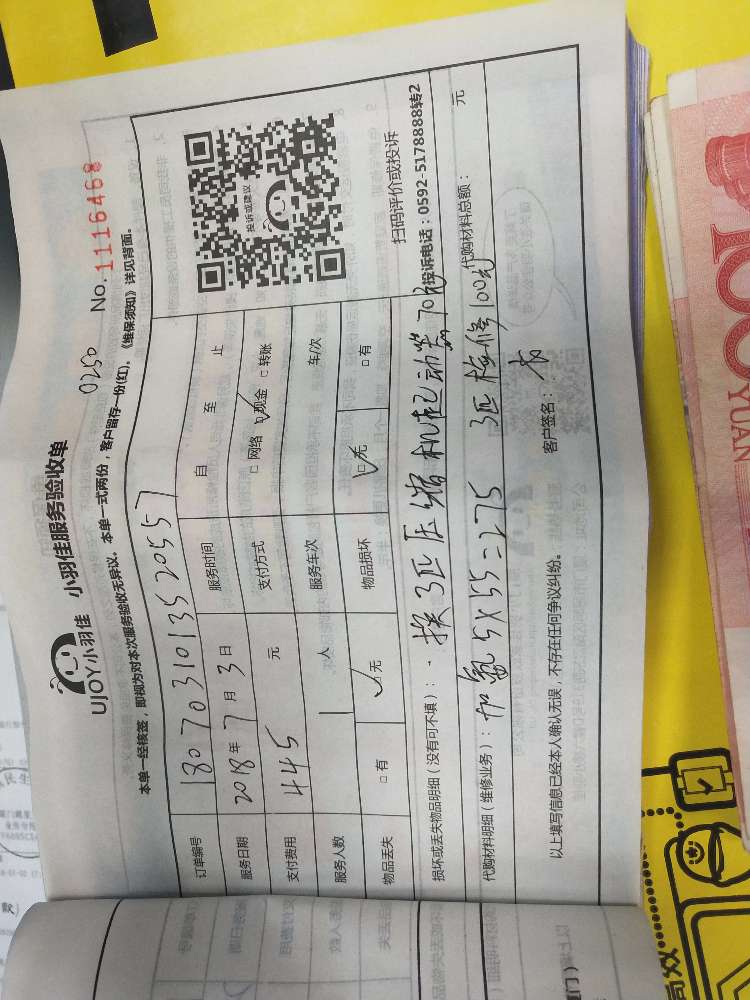 UJOY小羽佳 小羽佳服务验收单
0250 No.1116468
本单一经核签,即视为对本次服务验收无异议。本单一式两份,客户留存一份(红)。《维保须知》详见背面。
订单编号 180703101352 20557
服务日期 2018年7月3日 服务时间 自 至 止
支付费用 445 元 支付方式 □网络 ☑现金 □转账
服务人数 1 人 服务车次 车/次
物品丢失 □有 ☑无 物品损坏 ☑无 □有
投诉或建议
扫码评价或投诉
投诉电话:0592-5178888转2
损坏或丢失物品明细(没有可不填): 换3匹压缩机起动器70元
代购材料明细(维修业务): 加氟5×55=275 3匹检修100元 代购材料总额: 元
以上填写信息已经本人确认无误,不存在任何争议纠纷。 客户签名:
100
YUAN
高效